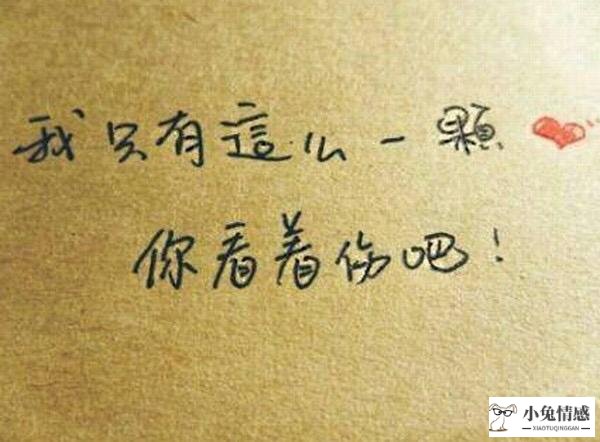 我只有這么一顆
你看着伤吧!
小兔情感
XIAOTUQINGGAN